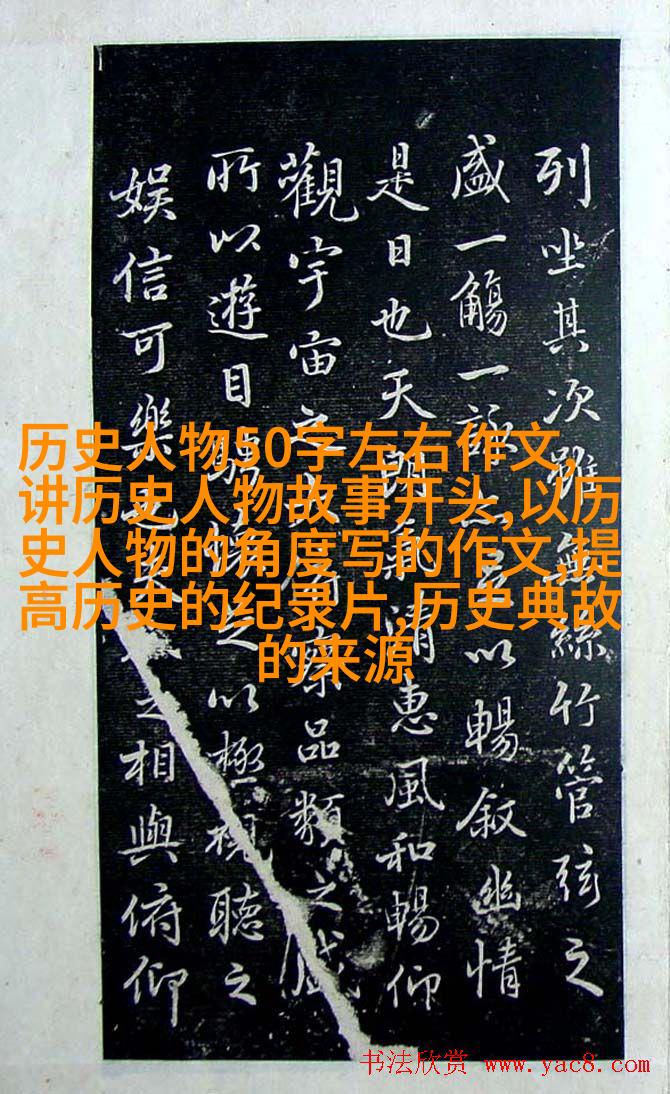 列坐其次雖無絲竹管弦之
盛一觴一詠亦足以暢叙幽情
是日也天朗氣清惠風和暢仰
觀宇宙之大俯察品類之盛
所以遊目騁懷足以極視聽之
娛信可樂也夫之相與俯仰
历史人物50字左右作文,
讲历史人物故事开头,以历
史人物的角度写的作文,提
高历史的纪录片,历史典故
的来源
书法欣赏 www.yac8.com